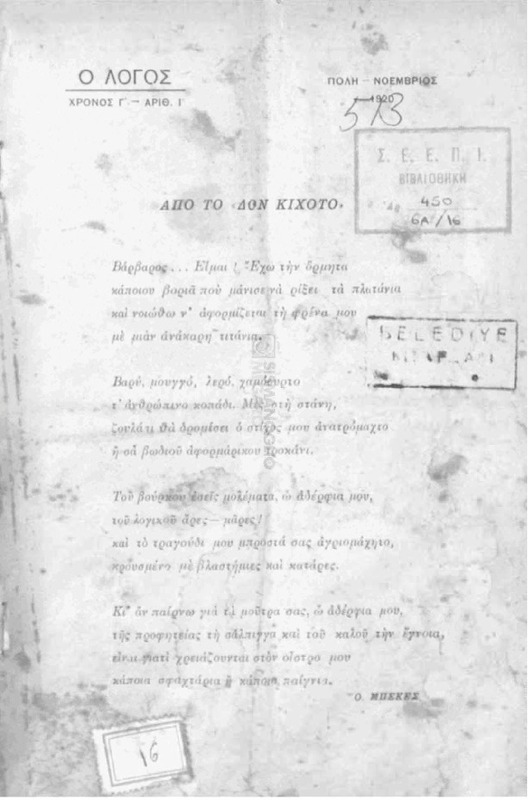 Ο ΛΟΓΟΣ
ΧΡΟΝΟΣ Γ΄. — ΑΡΙΘ. Ι΄
ΠΟΛΗ — ΝΟΕΜΒΡΙΟΣ
1920
573
Σ. Ε. Ε. Π. Ι.
ΒΙΒΛΙΟΘΗΚΗ
450
6Α/16
ΑΠΟ ΤΟ «ΔΟΝ ΚΙΧΟΤΟ»
Βάρβαρος... Εἶμαι! Ἔχω τὴν ὅρμητα
κάποιου βοριᾶ ποὺ μάνισε νὰ ρίξει τὰ πλατάνια
καὶ νοιώθω ν' ἀφορμίζεται τὴ φρένα μου
μὲ μιὰν ἀνάκαρη τιτάνια.
BELEDİYE
Βαρύ, μουγγό, λερό, χαμόσυρτο
τ' ἀνθρώπινο κοπάδι. Μὲς στὴ στάνη,
θὰ δρομίσει ὁ στίχος μου ἀνατρόμαχτο
ἢ σὰ βωδιοῦ ἀφορμάρικου τροκάνι.
Τοῦ βούρκου ἐσεῖς μολέματα, ὦ ἀδέρφια μου,
τοῦ λογικοῦ ἄρες — μάρες!
καὶ τὸ τραγούδι μου μπροστά σας ἀγριομάχητο,
κρουσμένο μὲ βλαστήμιες καὶ κατάρες.
Κι' ἂν παίρνω γιὰ τὰ μοῦτρα σας, ὦ ἀδέρφια μου,
τῆς προφητείας τὴ σάλπιγγα καὶ τοῦ καλοῦ τὴν ἔγνοια,
εἶναι γιατὶ χρειάζουνται στὸν οἶστρο μου
κάποια σφαχτάρια ἢ κάποια παίγνια.
Ο. ΜΠΕΚΕΣ
16